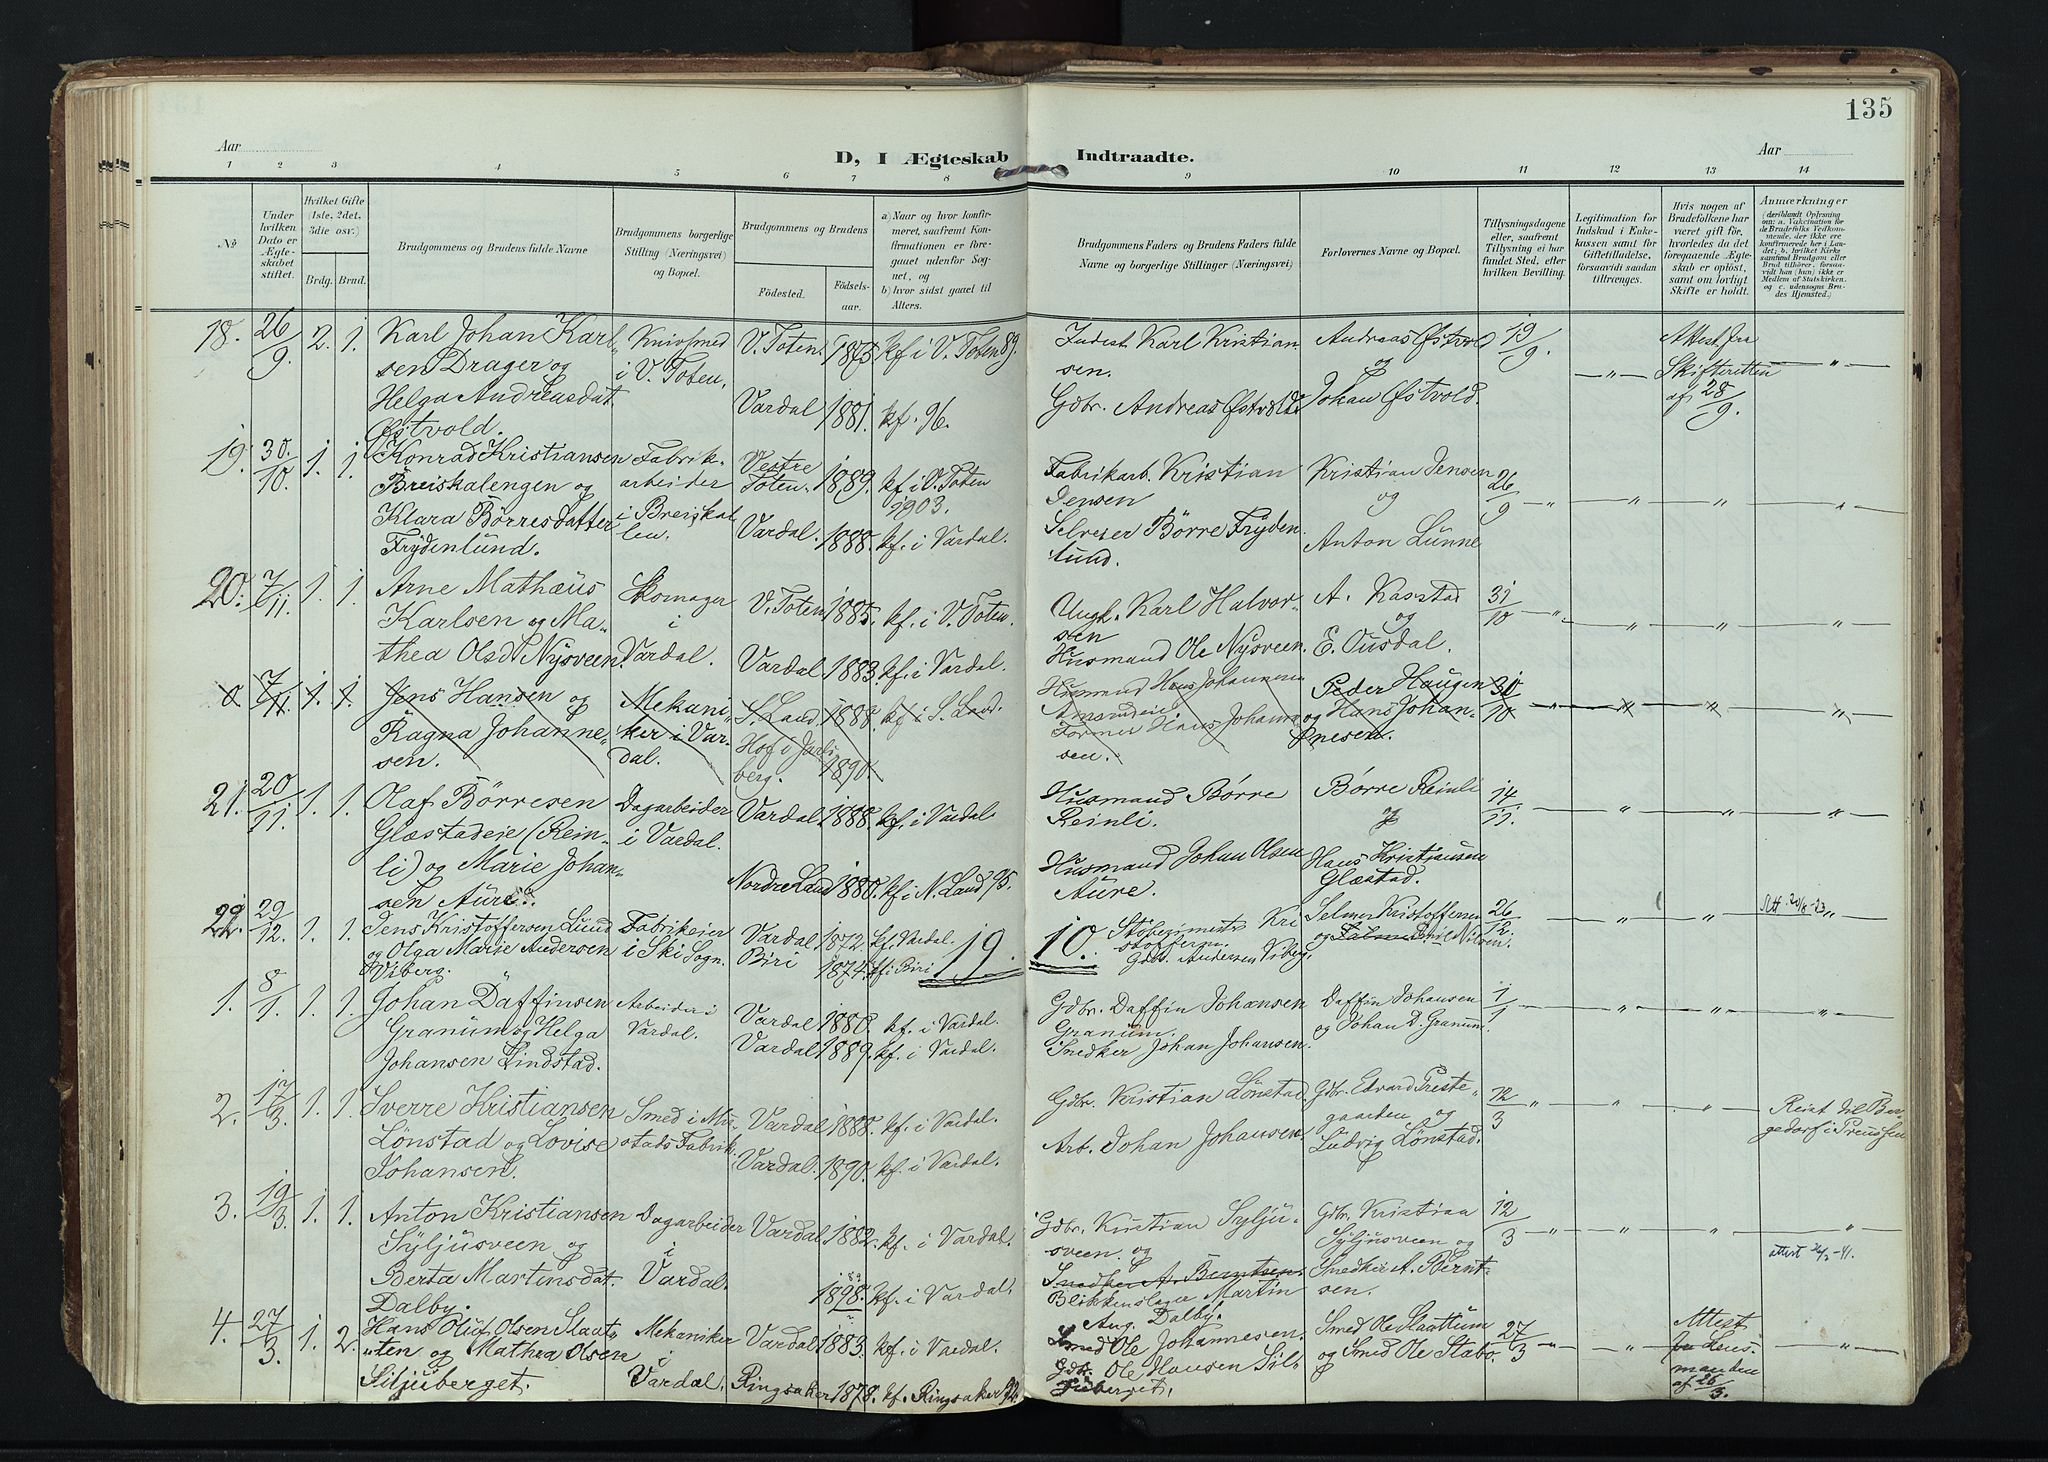 135
Aar
D, I Ægteskab Indtraadte.
Aar
1 2 3 4 5 6 7 8 9 10 11 12 13 14
№
Under hvilken Dato er Ægteskabet stiftet.
Hvilket Gifte (1ste, 2det, 3die osv.)
Brdg. Brud.
Brudgommens og Brudens fulde Navne
Brudgommens borgerlige Stilling (Næringsvei) og Bopæl.
Brudgommens og Brudens
Födested.
Födselsaar.
a) Naar og hvor konfirmeret, saafremt Konfirmationen er foregaaet udenfor Sognet, og
b) hvor sidst gaaet til Alters.
Brudgommens Faders og Brudens Faders fulde Navne og borgerlige Stillinger (Næringsvei)
Forlovernes Navne og Bopæl.
Tillysningsdagene eller, saafremt Tillysning ei har fundet Sted, efter hvilken Bevilling.
Legitimation for Indskud i Enkekassen samt for Giftetilladelse, forsaavidt saadan tiltrænges.
Hvis nogen af Brudefolkene har været gift för, hvorledes da det foregaaende Ægteskab er oplöst, samt om lovligt Skifte er holdt.
Anmærkninger
(deriblandt Oplysning om: a. Vakcination for de Brudefolks Vedkommende, der ikke ere konfirmerede her i Landet, b. hvilket Kirkesamfund Brudgom eller Brud tilhörer, forsaavidt han (hun) ikke er Medlem af Statskirken, og c. udensogns Brudes Hjemsted.)
18. 26/9 2. 1. Karl Johan Karlsen Drager og Knivsmed i V. Toten. V. Toten. 1875 kf. i V. Toten 89. Indest. Karl Kristiansen. Andreas Østvold og 19/9. — " — Attest fra Skifteretten af 28/9. — " —
Helga Andreasdat. Østvold. Vardal 1881. kf. 96. Gdbr. Andreas Østvold. Johan Østvold.
19. 30./10. 1. 1. Konrad Kristiansen Breiskalengen og Fabrikarbeider i Breiskallen. Vestre Toten. 1889. kf. i V. Toten 1903. Fabrikarb. Kristian Jensen Kristian Jensen og 26/9 " " " "
Klara Börresdatter Frydenlund. Vardal. 1888. kf. i Vardal. Selveier Børre Frydenlund. Anton Lunne
20. 7/11. 1. 1. Arne Mathæus Karlsen og Skomager i Vardal. V. Toten 1885. kf. i V. Toten. Karl Halvorsen A. Kasstad og 31/10 " " " "
Mathea Olsd. Nysveen. Vardal 1883. kf. i Vardal. Husmand Ole Nysveen. E. Ousdal.
0 7/11. 1. 1. Jens Hansen og Mekaniker i Vardal. S. Land. 1888. kf. i S. Land. Husmand Hans Johannesen Peder Haugen 30/10 " " " "
Ragna Johannesen. Hof i Jarlsberg. 1890. Former Hans Johannesen. og Hans Johannesen.
21. 20/11. 1. 1. Olaf Börresen Glæstadeie (Reinli) og Dagarbeider i Vardal. Vardal. 1888. kf. i Vardal. Husmand Børre Reinli. Børre Reinli og 14/11. — " — " — " —
Marie Johansen Aure. Nordre Land 1880. kf. i N. Land 95. Husmand Johan Olsen Aure. Hans Kristiansen Glæstad.
22. 29/12. 1. 1. Jens Kristoffersen Lund Fabrikeier i Ski Sogn. Vardal 1872. kf. Vardal. Kristoffersen. Selmer Kristoffersen 26/12. " " Att. 20/8-23 "
og Olga Marie Andersen Viberg. Biri 1874. kf. i Biri Gdbr. Andersen Viberg. og Emil Nilsen.
19 10.
1. 8/1. 1. 1. Johan Daffinsen Granum og Helga Arbeider i Vardal. Vardal 1880. kf. i Vardal. Gdbr. Daffin Johansen Granum. Daffin Johansen 1/1 " " " "
Johansen Lindstad. Vardal 1889. kf. i Vardal. Snedker Johan Johansen. og Johan D. Granum.
2. 17/3. 1. 1. Sverre Kristiansen Lönstad og Lovise Smed i Mustads Fabrik. Vardal 1888. kf. i Vardal. Gdbr. Kristian Lönstad. Gdbr. Edvard Prestegaarden og 12/3 " " " Reist til Bergedorf i Preussen
Johansen. Vardal. 1890. kf. i Vardal. Arb. Johan Johansen. Ludvig Lönstad.
3. 19/3. 1. 1. Anton Kristiansen Syljusveen og Dagarbeider i Vardal. Vardal 1882. kf. i Vardal. Gdbr. Kristian Syljusveen. og Gdbr. Kristian Syljusveen og 12/3 " " " "
Berta Martinsdat. Dalby. 1898. 89 kf. i Vardal. Snedker A. Berntsen. Blikkenslager Martin Aug. Dalby. Snedker A. Berntsen. attest
4. 27/3. 1. 2. Hans Oluf Olsen Slaatten og Mekaniker i Vardal. Vardal 1883. kf. i Vardal. Smed Ole Johannesen. Smed Ole Slaattum 27/3 " " Attest fra Lensmanden af 26/3.
Mathea Olsen Siljuberget. Ringsaker 1878. kf. Ringsaker 92. Gdbr. Ole Hansen Siljuberget. og Smed Ole Stabo.